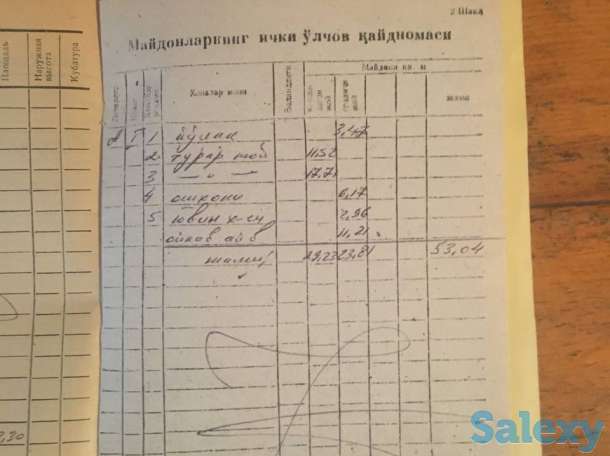 Площадь
Наружная высота
Кубатура
Майдонларнинг ички ўлчов қайдномаси
Майдони кв. м
Хоналар номи
Баландлиги
жами
1 йўлак 3,47
2 турар жой 11.52
3 — " — 17,71
4 ошхона 6,17
5 ювин х-си 2,96
ойнав айв 11,21
жами 29,23 23,81 53,04
Salexy